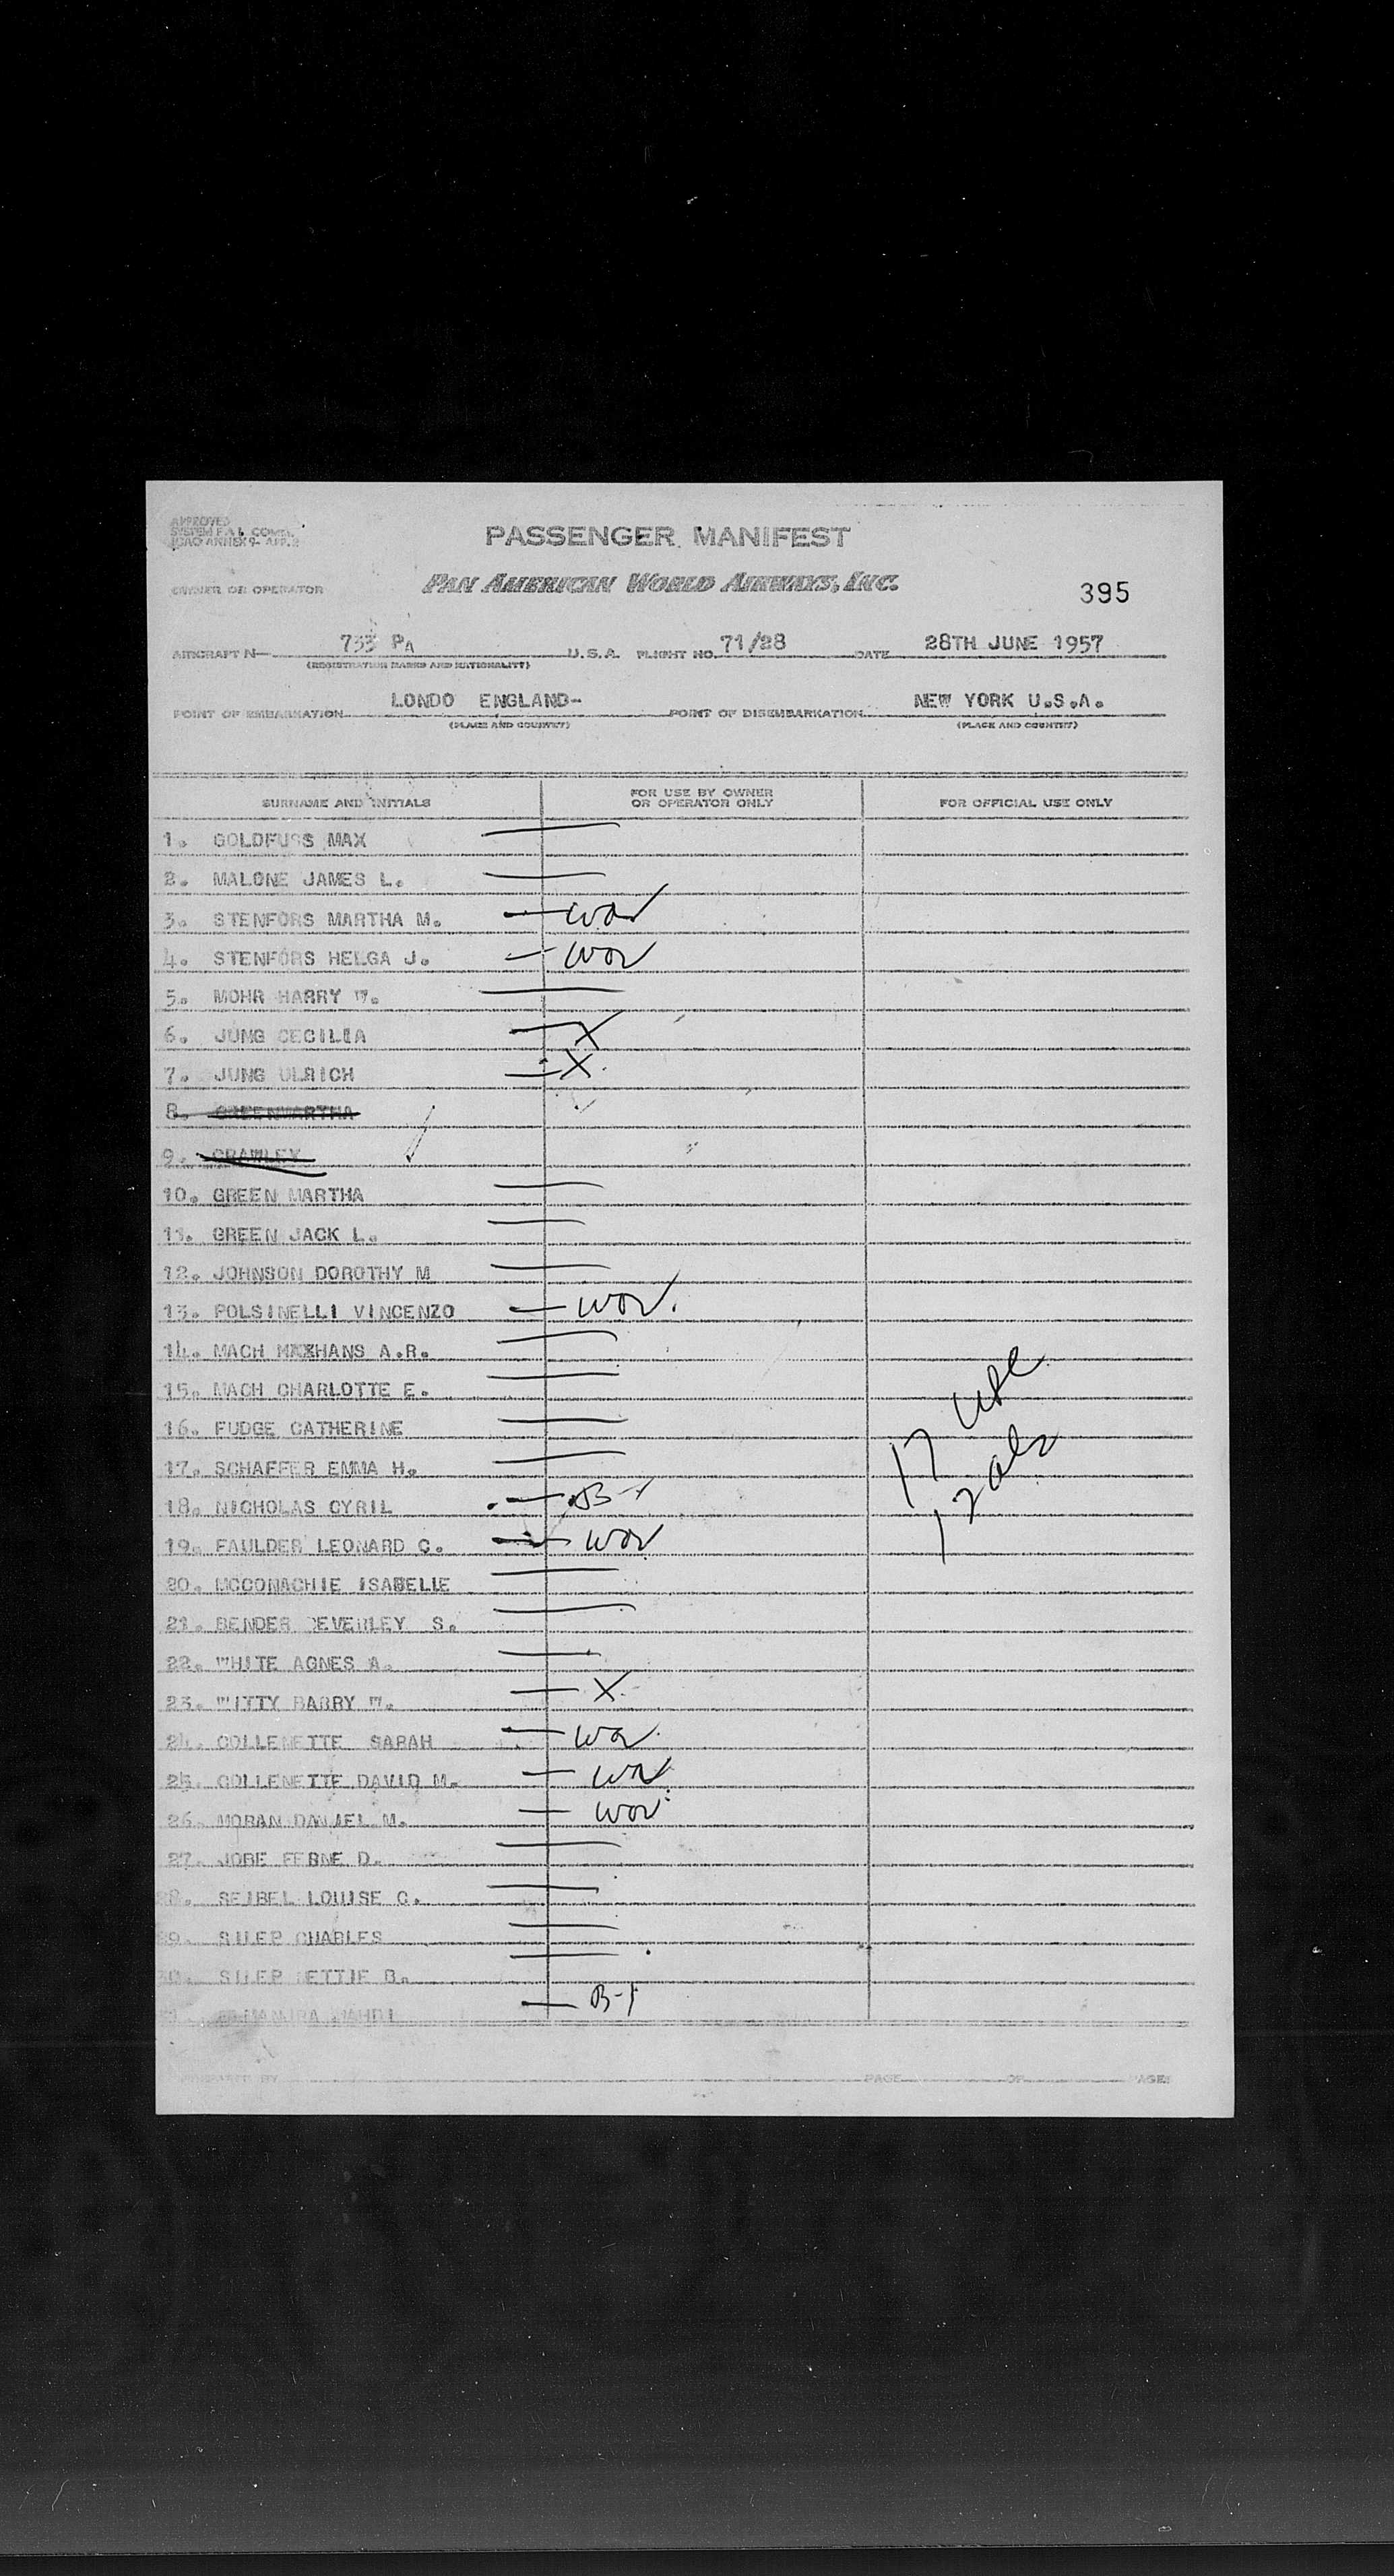 APPROVED
SYSTEM F.A.L. COMM.
ICAO ANNEX 9- APP. 2
PASSENGER MANIFEST
OWNER OR OPERATOR PAN AMERICAN WORLD AIRWAYS, INC.
395
AIRCRAFT N— 733 PA U.S.A. FLIGHT NO. 71/28 DATE 28TH JUNE 1957
(REGISTRATION MARKS AND NATIONALITY)
POINT OF EMBARKATION LONDO ENGLAND- POINT OF DISEMBARKATION NEW YORK U.S.A.
(PLACE AND COUNTRY) (PLACE AND COUNTRY)
SURNAME AND INITIALS FOR USE BY OWNER OR OPERATOR ONLY FOR OFFICIAL USE ONLY
1. GOLDFUSS MAX
2. MALONE JAMES L.
3. STENFORS MARTHA M. — wov
4. STENFORS HELGA J. — wov
5. MOHR HARRY W.
6. JUNG CECILIA — X
7. JUNG ULRICH — X
8. GREENMARTHA
9. CRAWLEY
10. GREEN MARTHA
11. GREEN JACK L.
12. JOHNSON DOROTHY M
13. POLSINELLI VINCENZO — wov.
14. MACH HANS A.R.
15. MACH CHARLOTTE E.
16. FUDGE CATHERINE
17. SCHAFFER EMMA H.
17 usc
18. NICHOLAS CYRIL — B-1
12 als
19. FAULDER LEONARD C. — wov
20. MCCONACHIE ISABELLE
21. BENDER BEVERLEY S.
22. WHITE AGNES A.
23. WITTY BARRY W. — X
24. COLLENETTE SARAH — wov
25. COLLENETTE DAVID M. — wov
26. MORAN DANIEL M. — wov
27. JOBE FERNE D.
28. SEIBEL LOUISE C.
29. SILER CHARLES
30. SILER NETTIE B.
— B-1
PREPARED BY PAGE OF PAGES